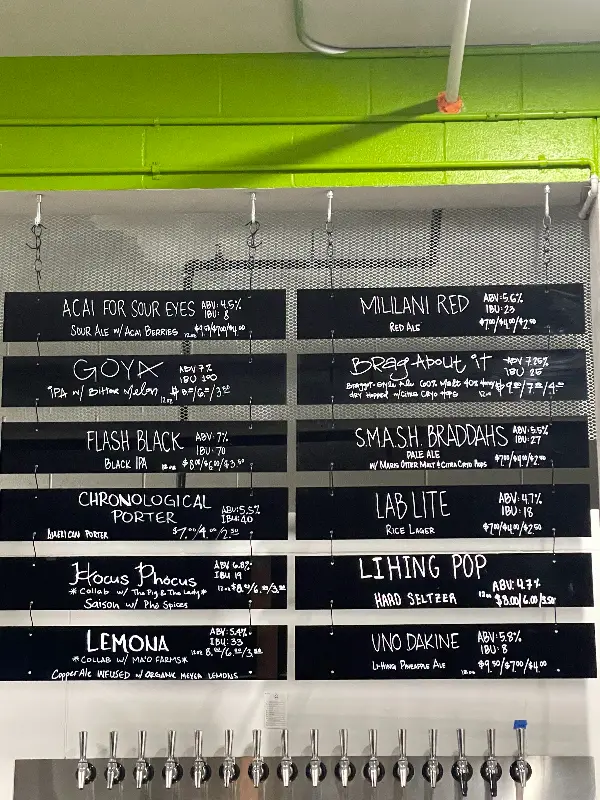 ACAI FOR SOUR EYES ABV: 4.5%
IBU: 8
SOUR ALE W/ ACAI BERRIES 12oz $9.50/$7.00/$4.00
GOYA ABV 7%
IBU 100
IPA w/ Bitter Melon $8.00/6.00/3.50
12oz
FLASH BLACK ABV: 7%
IBU: 70
BLACK IPA 12oz $8.00/$6.00/$3.50
CHRONOLOGICAL
PORTER ABV: 5.5%
IBU: 40
AMERICAN PORTER $7.00/4.00/2.50
Hocus Phocus ABV 6.8%
IBU 19
*Collab w/ The Pig & The Lady* 12oz $8.00/6.00/3.50
Saison w/ Pho Spices
LEMONA ABV: 5.4%
IBU: 33
*COLLAB W/ MA'O FARMS* 12oz 8.00/6.00/3.50
Copper Ale INFUSED w/ ORGANIC MEYER LEMONS
MILILANI RED ABV: 5.6%
IBU: 23
RED ALE $7.00/$4.00/$2.50
Bragg About it ABV 7.25%
IBU 25
Braggot-Style Ale 60% Malt 40% Honey $9.50/7.00/4.00
dry hopped w/ Citra Cryo Hops 12oz
S.M.A.S.H. BRADDAHS ABV: 5.5%
IBU: 27
PALE ALE $7.00/$4.00/$2.50
W/ MARIS OTTER MALT & CITRA CRYO HOPS
LAB LITE ABV: 4.7%
IBU: 18
RICE LAGER $7.00/$4.00/$2.50
LIHING POP
ABV: 4.7%
HARD SELTZER 12oz $8.00/6.00/3.50
UNO DAKINE ABV: 5.8%
IBU: 8
LI-HING PINEAPPLE ALE $9.50/$7.00/$4.00
12oz